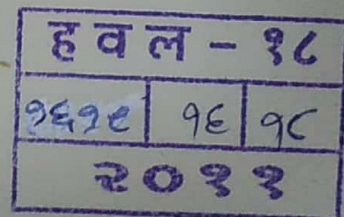 हवल - १८
१६१९ १६ १८
२०११